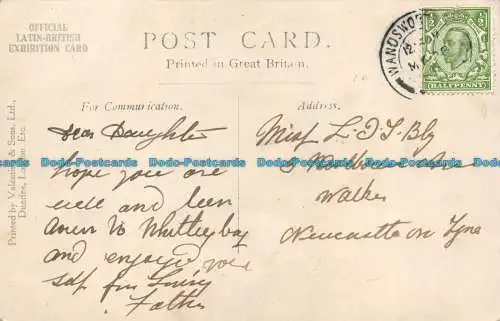 OFFICIAL
LATIN-BRITISH
EXHIBITION CARD
POST CARD.
Printed in Great Britain.
WANDSWO
HALFPENNY
For Communication.
Address.
Printed by Valentine & Sons, Ltd.,
Dundee, London, Etc.
Dear Daughter
hope you are
well and been
to Whitley bay
and enjoyed your
self from Loving
Father
Miss L.
Walker
Newcastle on Tyne
Dodo-Postcards Dodo-Postcards Dodo-Postcards Dodo-Postcards Dodo-Postcards